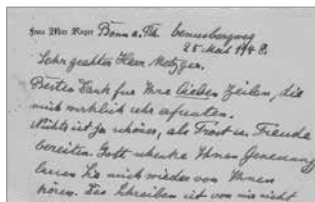 Bonn a. Rh. Venusbergweg
25. Mai 1948.
Sehr geehrter Herr Metzger.
Besten Dank für Ihre lieben Zeilen, die
mich wirklich sehr erfreuten.
Nichts ist ja schöner, als Trost u. Freude
bereiten. Gott schenke Ihnen Genesung
lassen Sie mich wieder von Ihnen
hören. Das Schreiben ist von mir nicht